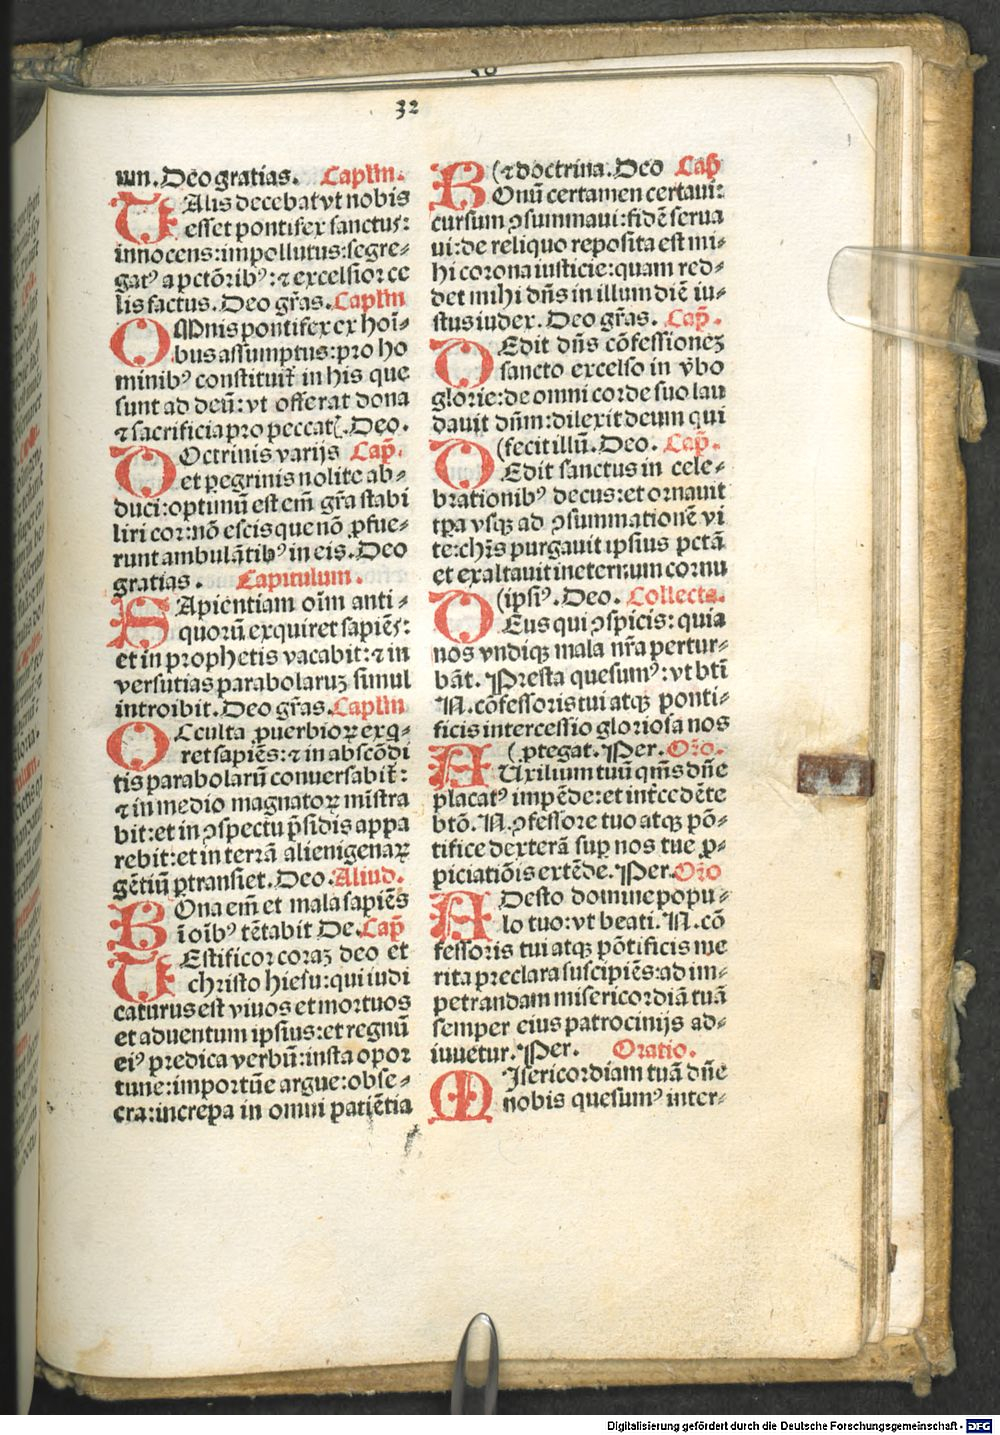 32
un. Deo gratias. Caplm.
TAlis decebat vt nobis
esset pontifex sanctus:
innocens: impollutus: segre-
gatꝰ a pctōribꝰ: ⁊ excelsior ce
lis factus. Deo gr̄as. Caplm
OMnis pontifex ex hoī-
bus assumptus: pro ho
minibꝰ constituit̄ in his que
sunt ad deū: vt offerat dona
⁊ sacrificia pro peccat. Deo.
DOctrinis varijs Cap̄.
et peregrinis nolite ab-
duci: optimū est em̄ gr̄a stabi
liri cor: nō escis que nō ꝓfue-
runt ambulātibꝰ in eis. Deo
gratias. Capitulum.
SApientiam oīm anti-
quorū exquiret sapiēs:
et in prophetis vacabit: ⁊ in
versutias parabolaruꝫ simul
introibit. Deo gr̄as. Caplm
OCculta ꝓuerbioꝝ exq̄-
ret sapiēs: ⁊ in abscōdi
tis parabolarū conuersabit̄:
⁊ in medio magnatoꝝ mīstra
bit: et in ꝯspectu p̄sidis appa
rebit: et in terrā alienigenaꝝ
gētiū ꝑtransiet. Deo. Aliud.
BOna em̄ et mala sapiēs
ī oībꝰ tētabit De. Cap̄
TEstificor coraꝫ deo et
christo hiesu: qui iudi
caturus est viuos et mortuos
et aduentum ipsius: et regnū
eiꝰ predica verbū: insta opor
tune: importūe argue: obse-
cra: increpa in omni patiētia
(⁊ doctrina. Deo Cap̄
BOnū certamen certaui:
cursum ꝯsummaui: fidē serua
ui: de reliquo reposita est mi-
hi corona iusticie: quam red-
det mihi dn̄s in illum diē iu-
stus iudex. Deo gr̄as. Cap̄.
DEdit dn̄s cōfessioneꝫ
sancto excelso in v̄bo
glorie: de omni corde suo lau
dauit dn̄m: dilexit deum qui
(fecit illū. Deo. Cap̄.
DEdit sanctus in cele-
brationibꝰ decus: et ornauit
tp̄a vsqꝫ ad ꝯsummationē vi
te: chr̄s purgauit ipsius pctā
et exaltauit in eternum cornu
(ipsiꝰ. Deo. Collecta.
DEus qui ꝯspicis: quia
nos vndiqꝫ mala nr̄a pertur-
bāt. Presta quesumꝰ: vt bt̄i
N. cōfessoris tui atqꝫ ponti-
ficis intercessio gloriosa nos
(ꝓtegat. Per. Oro.
AUxilium tuū qm̄s dn̄e
placatꝰ impēde: et int̄cedēte
btō. N. ꝯfessore tuo atqꝫ pō-
tifice dexterā sup nos tue ꝓ-
piciatiōis extēde. Per. Oro
ADesto domine popu-
lo tuo: vt beati. N. cō
fessoris tui atqꝫ pōtificis me
rita preclara suscipiēs: ad im-
petrandam misericordiā tuā
semper eius patrocinijs ad-
iuuetur. Per. Oratio.
MIsericordiam tuā dn̄e
nobis quesumꝰ inter-
Digitalisierung gefördert durch die Deutsche Forschungsgemeinschaft - DFG